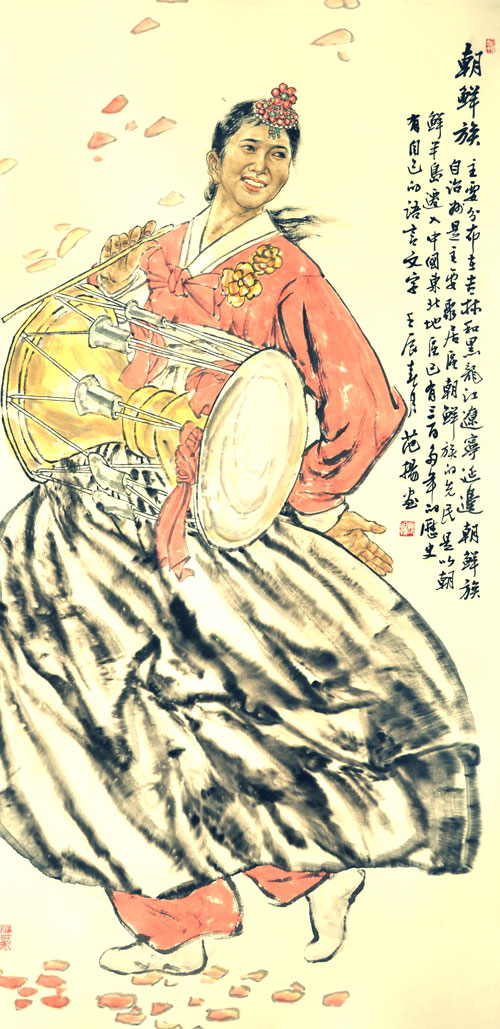 朝鮮族 主要分布在吉林和黑龍江遼寧延邊朝鮮族
自治州是主要聚居區朝鮮族的先民是从朝
鮮半島遷入中國東北地區已有三百多年的歷史
有自己的語言文字 壬辰春月 范揚画